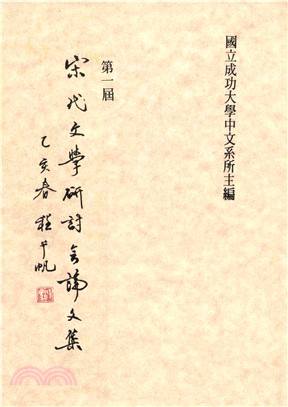 國立成功大學中文系所主編
第一屆
宋代文學研討會論文集
乙亥春 程千帆
三民